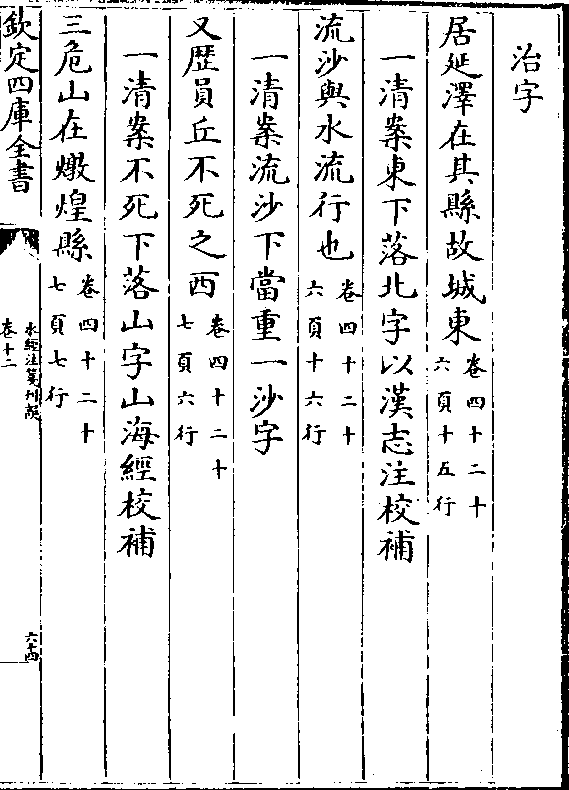 治字
居延澤在其縣故城東卷四十二十六頁十五行
一清案東下落北字以漢志注校補
流沙與水流行也卷四十二十六頁十六行
一清案流沙下當重一沙字
又歴員丘不死之西卷四十二十七頁六行
一清案不死下落山字山海經校補
三危山在燉煌縣卷四十二十七頁七行
欽定四庫全書
水經注箋刊誤
卷十二
六十四